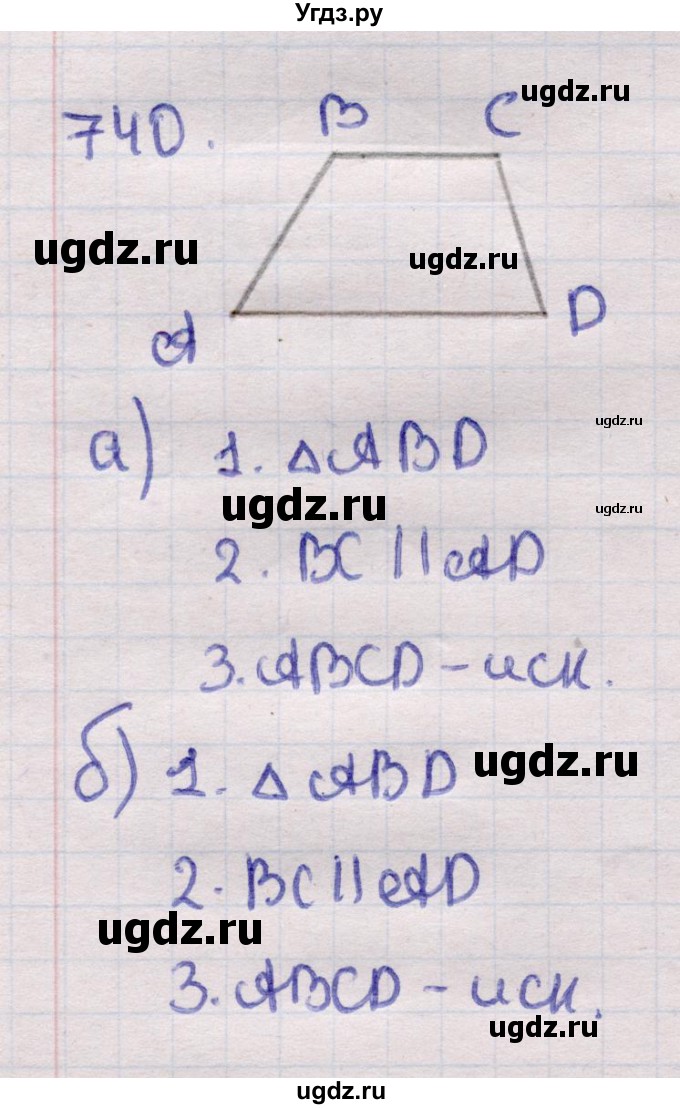 Угдз.ру
740.
B C
ugdz.ru
ugdz.ru
ugdz.ru
A D
а) 1. △ABD
ugdz.ru
ugdz.ru
ugdz.ru
2. BC || AD
3. ABCD – иск.
б) 1. △ABD
ugdz.ru
2. BC || AD
ugdz.ru
3. ABCD – иск.
ugdz.ru
ugdz.ru